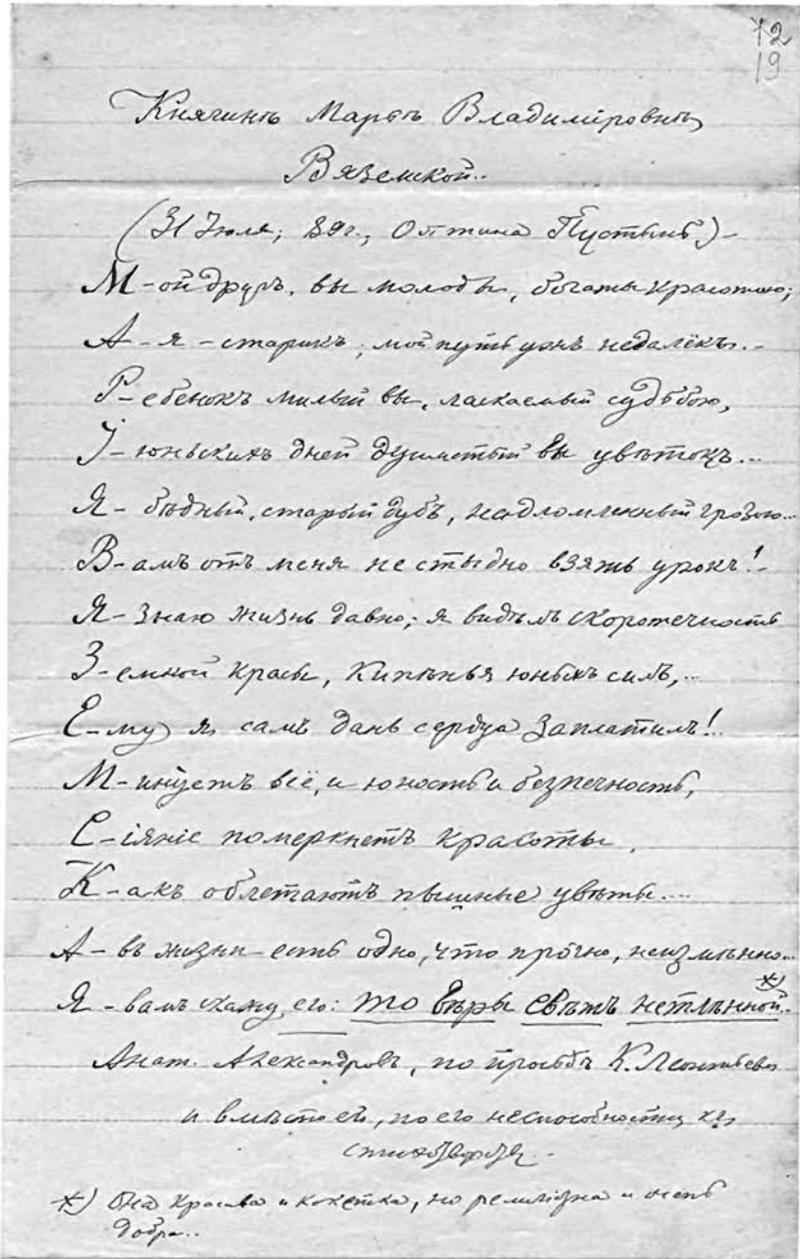 72
19
Княгинѣ Марьѣ Владиміровнѣ
Вяземской..
(31 Іюля; 89г., Оптина Пустынь) –
М-ой другъ, вы молоды, богаты красотою;
А-я-старикъ; мой путь ужъ недалёкъ..–
Р-ебёнокъ милый вы, ласкаемый судьбою,
І-юньскихъ дней душистый вы цвѣтокъ...
Я- бѣдный, старый дубъ, надломленный грозою...
В-амъ отъ меня не стыдно взять урокъ!–
Я- знаю жизнь давно; я видѣлъ скоротечность
З-емной красы, кипѣнья юныхъ силъ,...
Е-му я самъ дань сердца заплатилъ!..
М-инуетъ всё, и юность и безпечность,
С-іяніе померкнетъ красоты,
К-акъ облетаютъ пышные цвѣты....
А- въ жизни есть одно, что прочно, неизмѣнно...
Я -вамъ скажу его: то Вѣры свѣтъ нетлѣнной *)..
Анат. Александровъ, по просьбѣ К. Леонтьева
и вмѣсто его, по его неспособности къ
стихотворству.–
*) Она красива и кокетка, но религіозна и очень
добра..